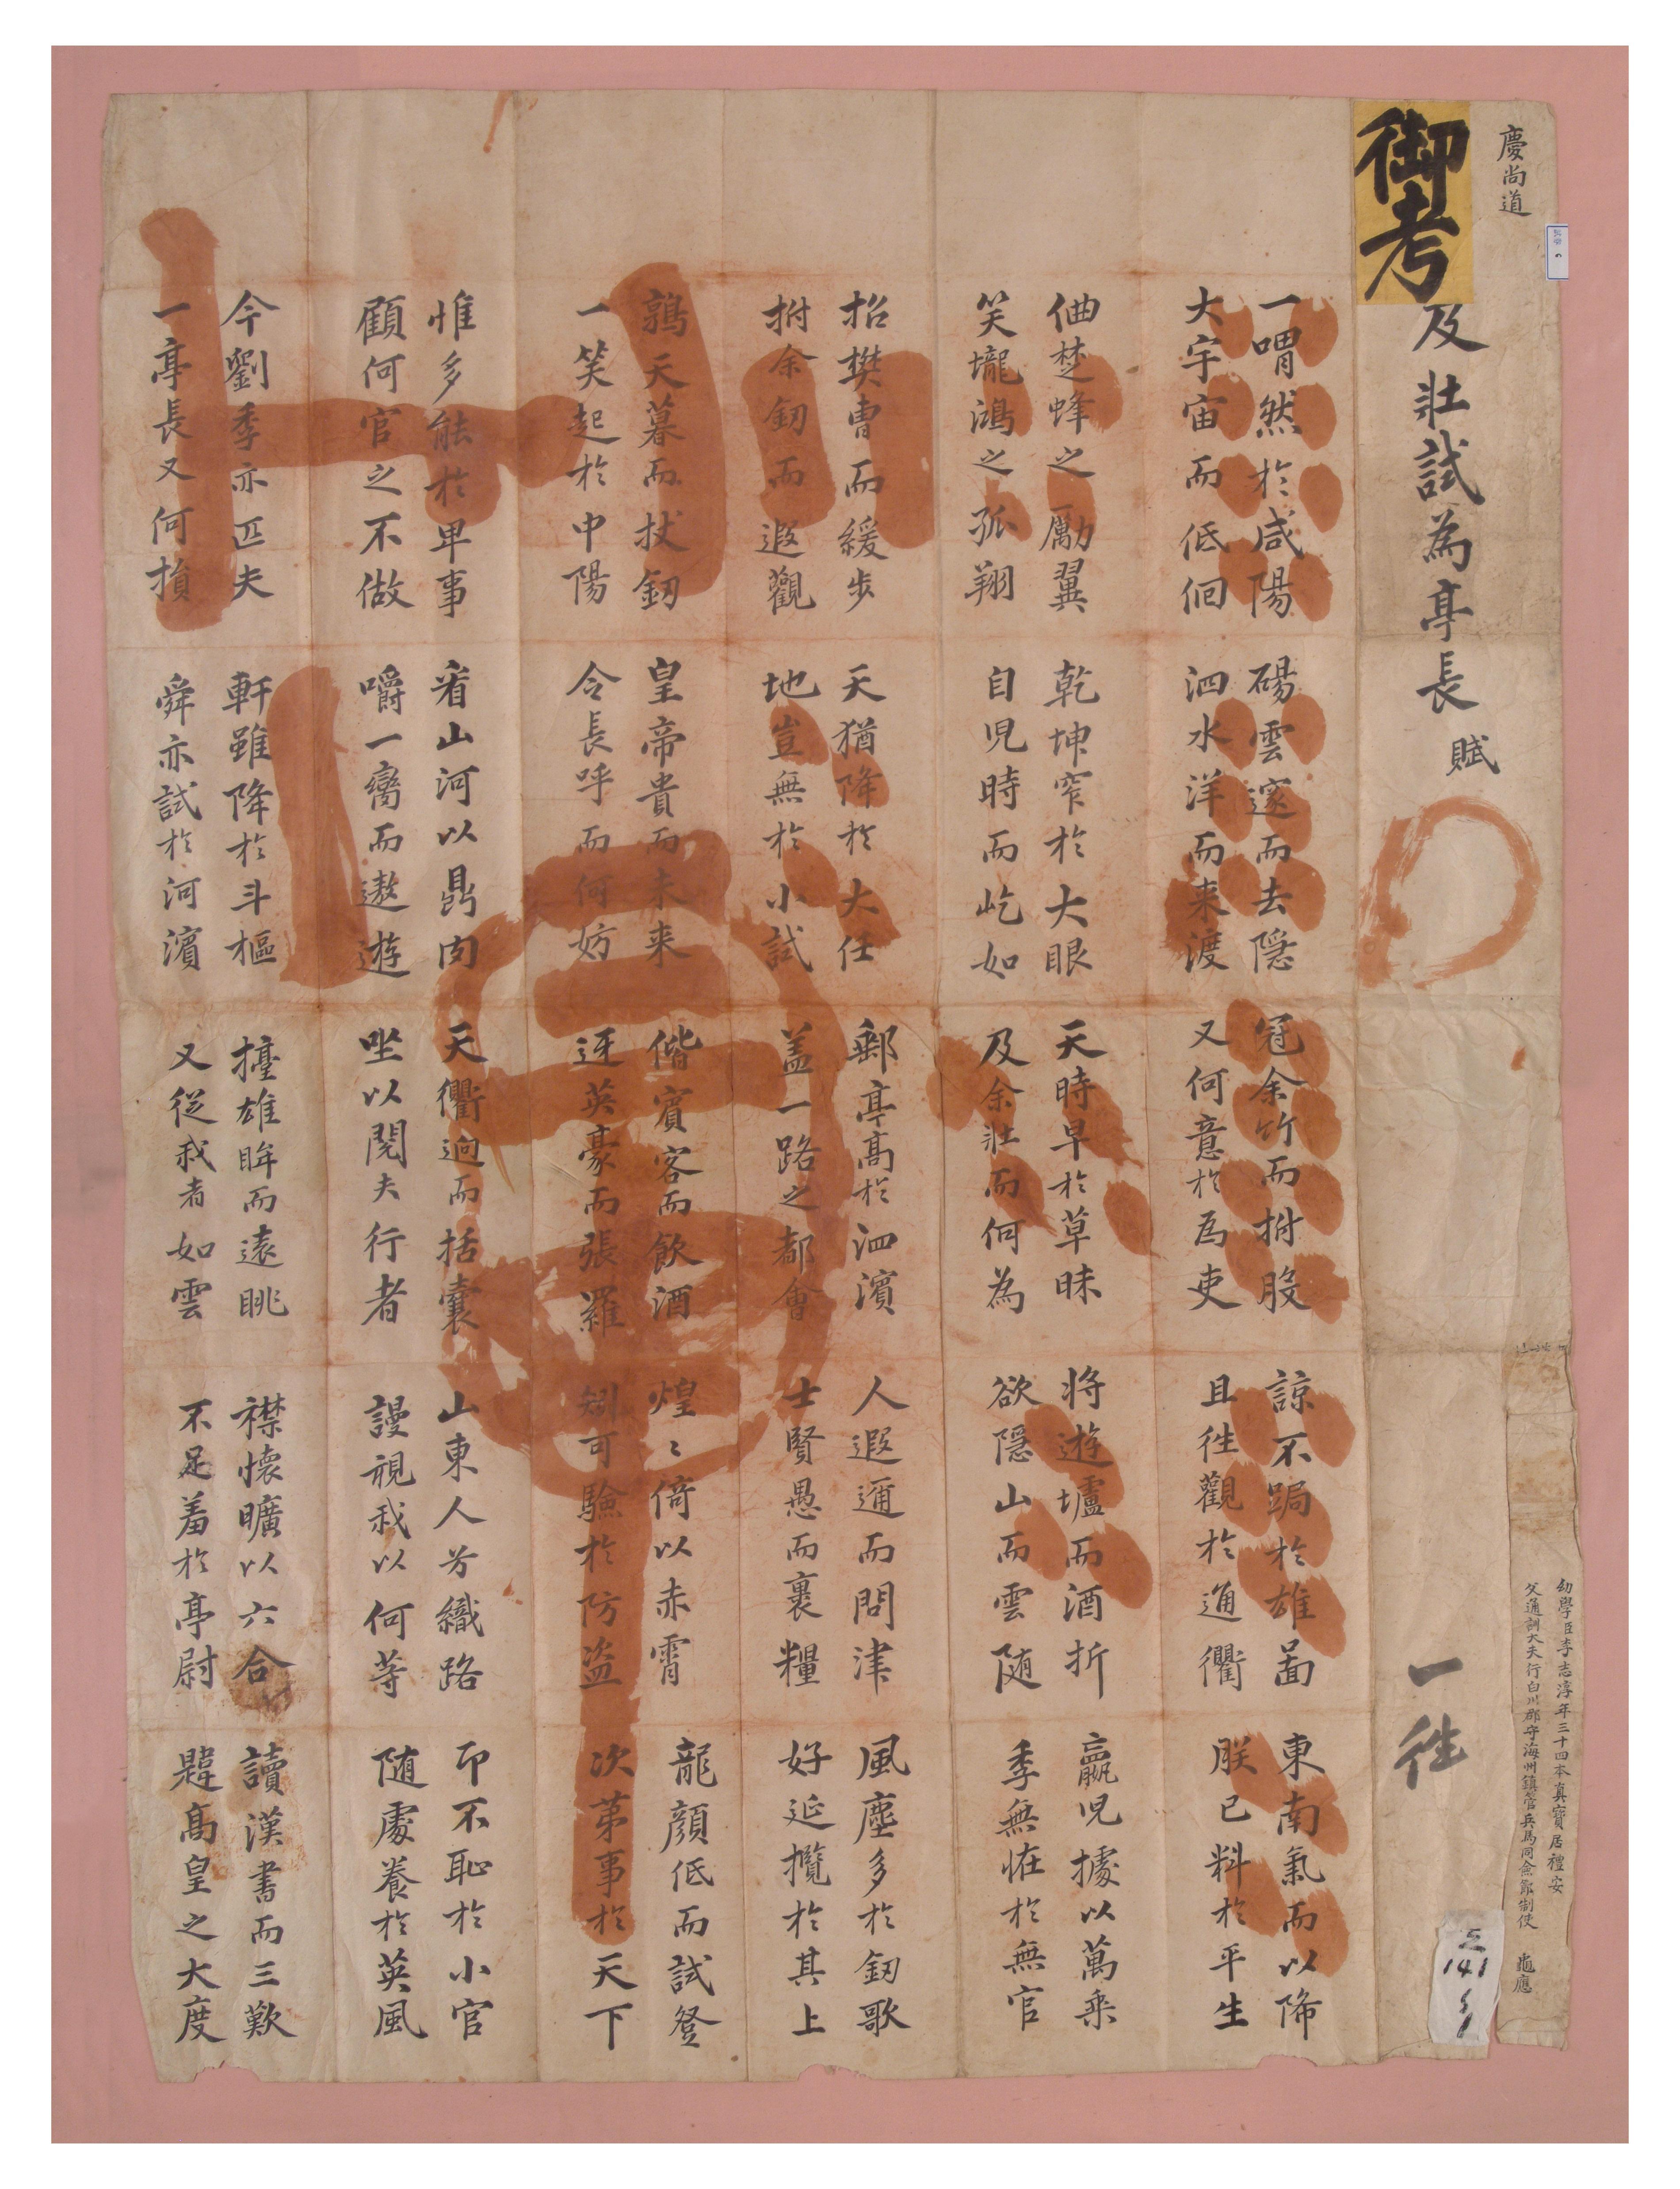 慶尚道
幼學臣李志淳年三十四本真寶居禮安
父通訓大夫行白川郡守海州鎮管兵馬同僉節制使 龜應
御考
及壯試為亭長賦
一徃
一喟然於咸陽 碭雲邃而去隱 冠余竹而拊股 諒不跼於雄啚 東南氣而以降
大宇宙而低佪 泗水洋而来渡 又何意於為吏 且徃觀於通衢 朕已料於平生
楚蜂之勵翼 乾坤窄於大眼 天時早於草昧 将遊壚而酒折 嬴児據以萬乘
笑壠鴻之孤翔 自児時而屹如 及余壯而何為 欲隱山而雲随 季無恠於無官
招樊曺而緩步 天猶降於大任 郵亭高於泗濱 人遐邇而問津 風塵多於釰歌
拊余釰而遐觀 地豈無於小試 盖一路之都會 士賢愚而裹糧 好延攬於其上
鶉天暮而扙釰 皇帝貴而未来 偕賓客而飲酒 煌〻倚以赤霄 龍顔低而試登
一笑起於中陽 令長呼而何妨 迓英豪而張羅 矧可驗於防盗 次苐事於天下
惟多能於卑事 看山河以鼎肉 天衢逈而括囊 山東人兮織路 卬不恥於小官
顧何官之不做 嚼一臠而遨遊 坐以閲夫行者 謾視我以何等 随處養於英風
今劉季亦匹夫 軒雖降於斗樞 擡雄眸而遠眺 襟懷曠以六合 讀漢書而三歎
一亭長又何損 舜亦試於河濱 又從我者如雲 不足羞於亭尉 韙高皇之大度
141